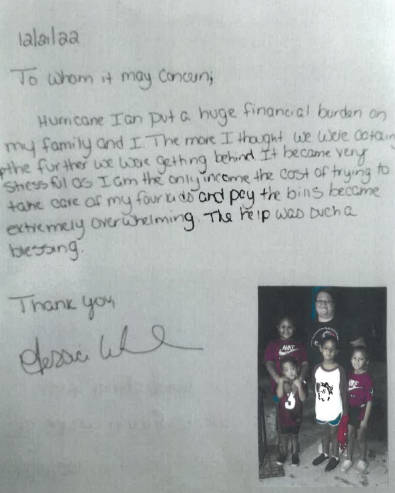 12/21/22
To whom it may concern;
Hurricane Ian put a huge financial burden on
my family and I. The more I thought we were
the further we were getting behind It became very
stressful as I am the only income the cost of trying to
take care of my four kids and pay the bills became
extremely overwhelming. The help was such a
blessing.
Thank you,